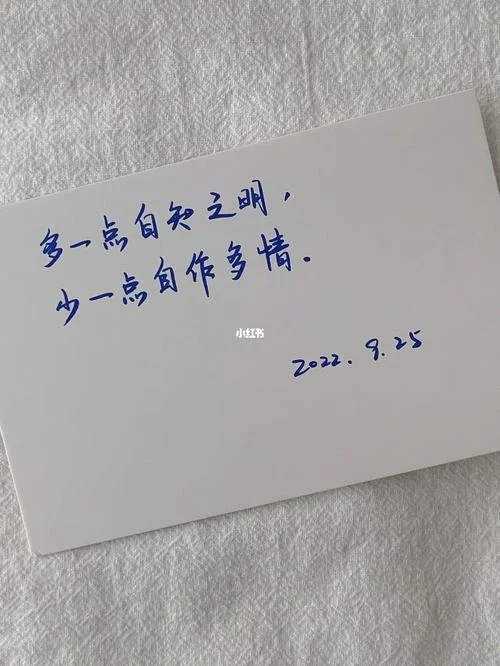 多一点自知之明，
少一点自作多情。
小红书
2022.9.25